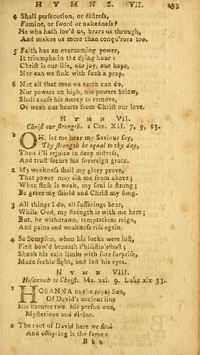 HYMNS. VII.
4 Shall persecution, or distress,
Famine, or sword or nakedness?
He who hath lov'd us, bears us through,
And makes us more than conqu'rors too.
5 Faith has an overcoming power,
It triumphs in the dying hour:
Christ is our life, our joy, our hope,
Nor can we sink with such a prop.
6 Not all that men on earth can do,
Nor powers on high, nor powers below,
Shall cause his mercy to remove,
Or wean our hearts from Christ our love.
HYMN VII.
Christ our strength. 2 Cor. XII. 7, 9, 13.
OH, let me hear my Saviour say,
Thy strength be equal to thy day,
Then I'll rejoice in deep distress,
And trust secure his sovereign grace.
2 My weakness shall my glory prove,
That power may aid me from above;
When flesh is weak, my soul is strong;
Be grace my shield and Christ my song.
3 All things I do, all sufferings bear,
While God, my strength is with me here;
But, he withdrawn, temptations reign,
And pains and weakness rise again.
4 So Sampson, when his locks were lost,
First bow'd beneath Philistia's host;
Shook his vain limbs with sore surprise,
Made feeble fight, and lost his eyes.
HYMN VIII.
Hosannah to Christ. Ma. xxi. 9. Luke xix 38.
HOSANNA to the royal Son,
Of David's ancient line
His natures two, his person one,
Mysterious and divine.
2 The root of David here we find
And offspring is the same:
Bb2